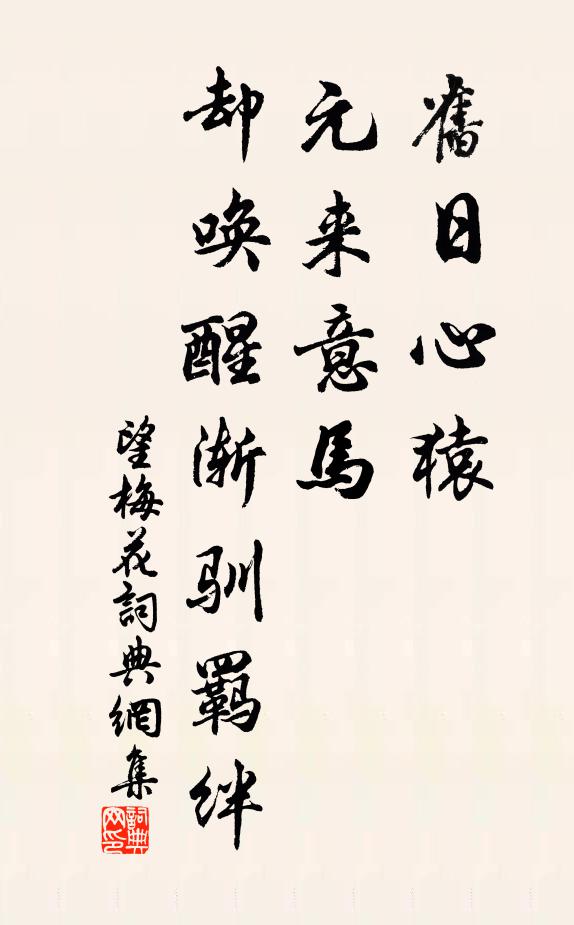 舊日心猿
元来意馬
却喚醒漸馴羈絆
望梅花詞典網集
詞典网印